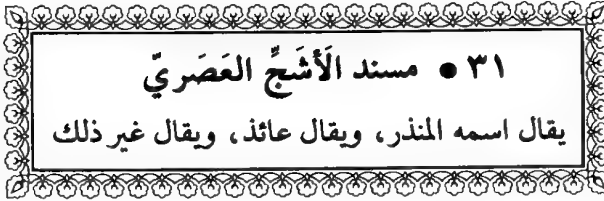 ٣١ • مسند الَأشَجِّ العَصَريّ
يقال اسمه المنذر، ويقال عائذ، ويقال غير ذلك